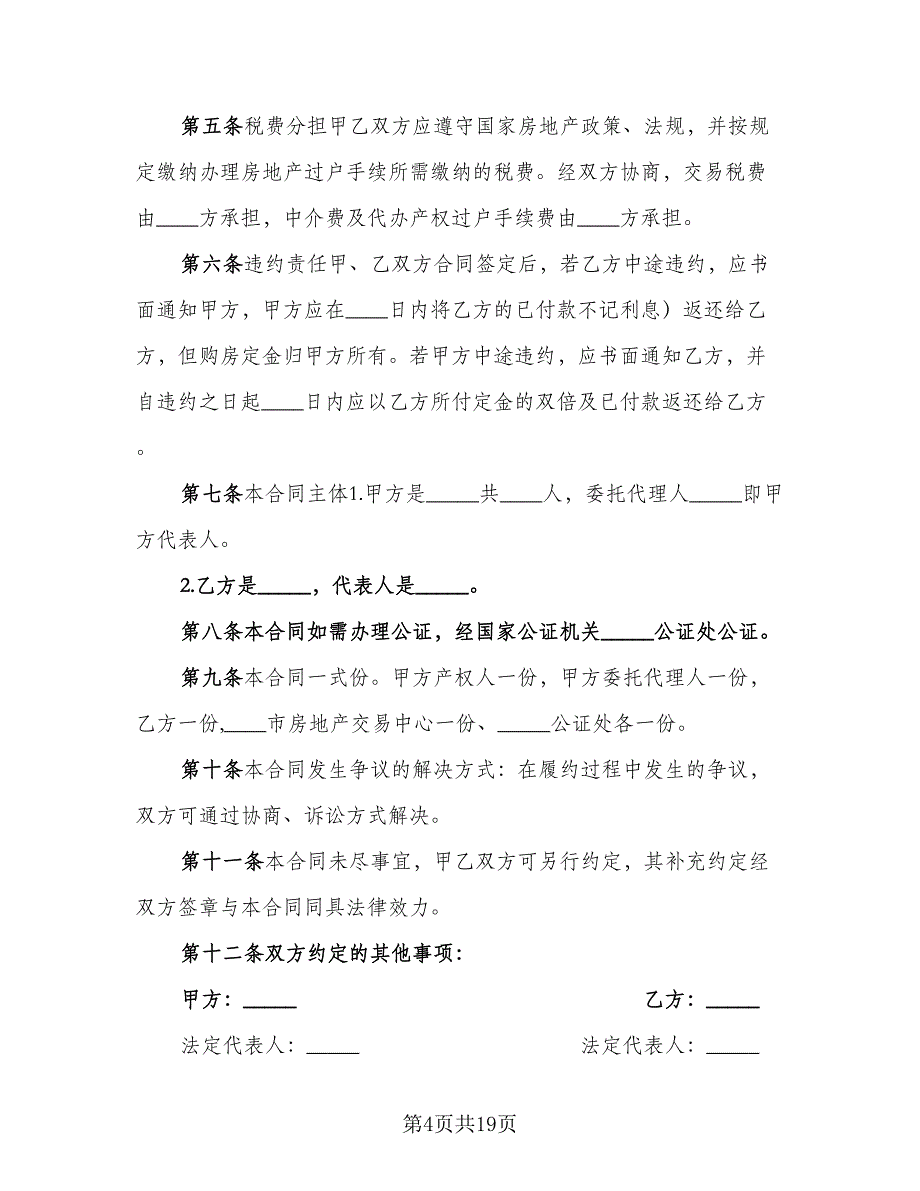 第五条税费分担甲乙双方应遵守国家房地产政策、法规，并按规
定缴纳办理房地产过户手续所需缴纳的税费。经双方协商，交易税费
由____方承担，中介费及代办产权过户手续费由____方承担。
第六条违约责任甲、乙双方合同签定后，若乙方中途违约，应书
面通知甲方，甲方应在____日内将乙方的已付款不记利息）返还给乙
方，但购房定金归甲方所有。若甲方中途违约，应书面通知乙方，并
自违约之日起____日内应以乙方所付定金的双倍及已付款返还给乙方
。
第七条本合同主体1.甲方是_____共____人，委托代理人_____即甲
方代表人。
2.乙方是_____，代表人是_____。
第八条本合同如需办理公证，经国家公证机关_____公证处公证。
第九条本合同一式份。甲方产权人一份，甲方委托代理人一份，
乙方一份,____市房地产交易中心一份、_____公证处各一份。
第十条本合同发生争议的解决方式：在履约过程中发生的争议，
双方可通过协商、诉讼方式解决。
第十一条本合同未尽事宜，甲乙双方可另行约定，其补充约定经
双方签章与本合同同具法律效力。
第十二条双方约定的其他事项：
甲方：_____ 乙方：_____
法定代表人：_____ 法定代表人：_____
第4页共19页